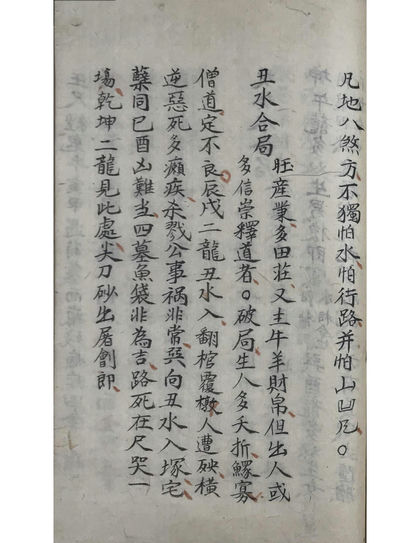 凡地八煞方不獨怕水怕行路并怕山凹风。
丑水合局
旺産業多田莊又主牛羊財帛但出人或
多信崇釋道者。破局生人多夭折鰥寡
僧道定不良辰戌二龍丑水入翻棺覆槨人遭殃橫
逆惡死多癲疾杀戮公事祸非常巽向丑水入塚宅
蘖同巳酉凶難当四墓魚袋非為吉路死在尺哭一
塲乾坤二龍見此處尖刀砂出屠劊郎